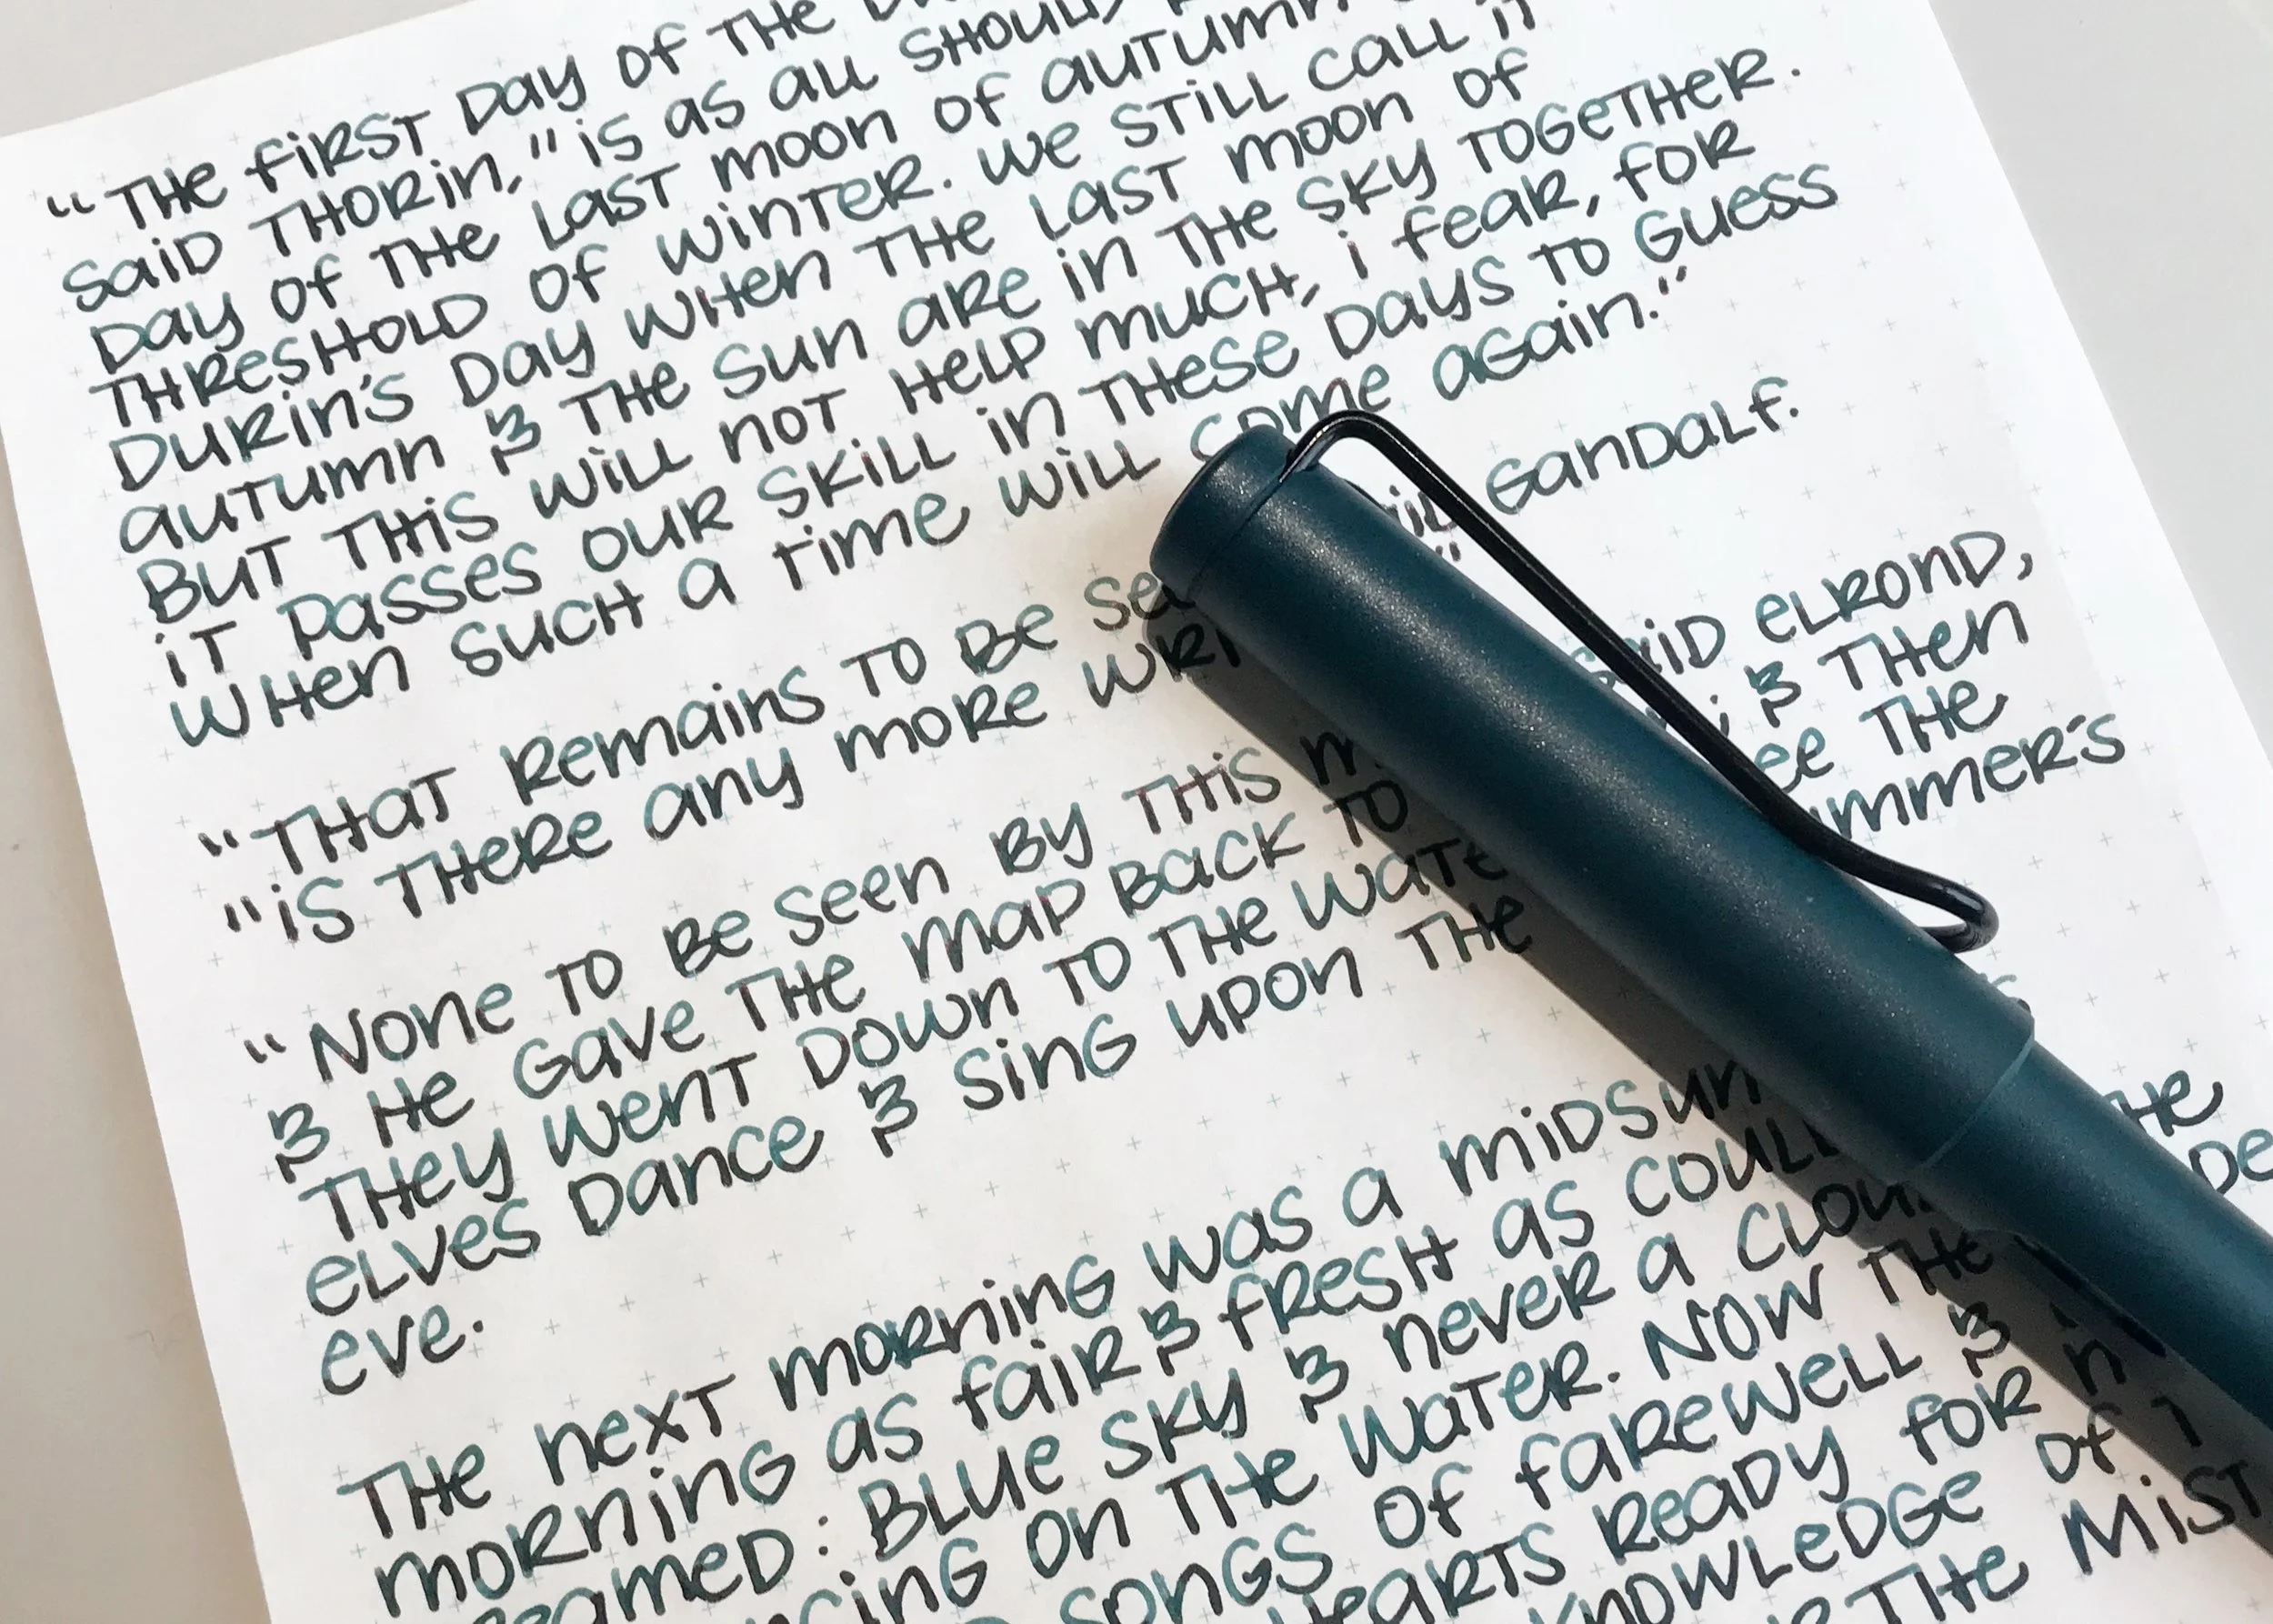 "THE FIRST DAY OF THE
SAID THORIN, "IS AS ALL SHOULD
DAY OF THE LAST MOON OF AUTUMN
THRESHOLD OF WINTER. WE STILL CALL IT
DURIN'S DAY WHEN THE LAST MOON OF
AUTUMN & THE SUN ARE IN THE SKY TOGETHER.
BUT THIS WILL NOT HELP MUCH, I FEAR, FOR
IT PASSES OUR SKILL IN THESE DAYS TO GUESS
WHEN SUCH A TIME WILL COME AGAIN."
"THAT REMAINS TO BE GANDALF.
"IS THERE ANY MORE
"NONE TO BE SEEN BY THIS SAID ELROND,
& HE GAVE THE MAP BACK TO & THEN
THEY WENT DOWN TO THE THE
ELVES DANCE & SING UPON THE
EVE.
THE NEXT MORNING WAS A
MORNING AS FAIR & FRESH AS THE
BLUE SKY & NEVER A
ON THE WATER. NOW THE
SONGS OF FAREWELL &
READY FOR
KNOWLEDGE OF
THE